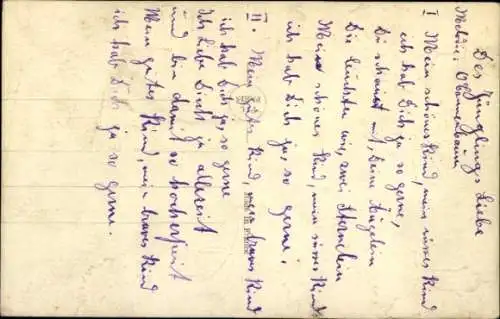 Des Jünglings Liebe
Melodie: O Tannenbaum
I Mein schönes Kind, mein süsses Kind
ich hab Dich ja so gerne,
Du scheinst mir, Deine Äuglein
Die leuchten wie zwei Sternlein
Mein schönes Kind, mein süsses Kind
ich hab Dich ja, so gerne.
II. Mein gutes Kind, mein braves Kind
ich hab Dich ja, so gerne
Ich liebe Dich ja allezeit
und bin damit so hocherfreit
Mein gutes Kind, mein braves Kind
ich hab Dich ja so gerne.